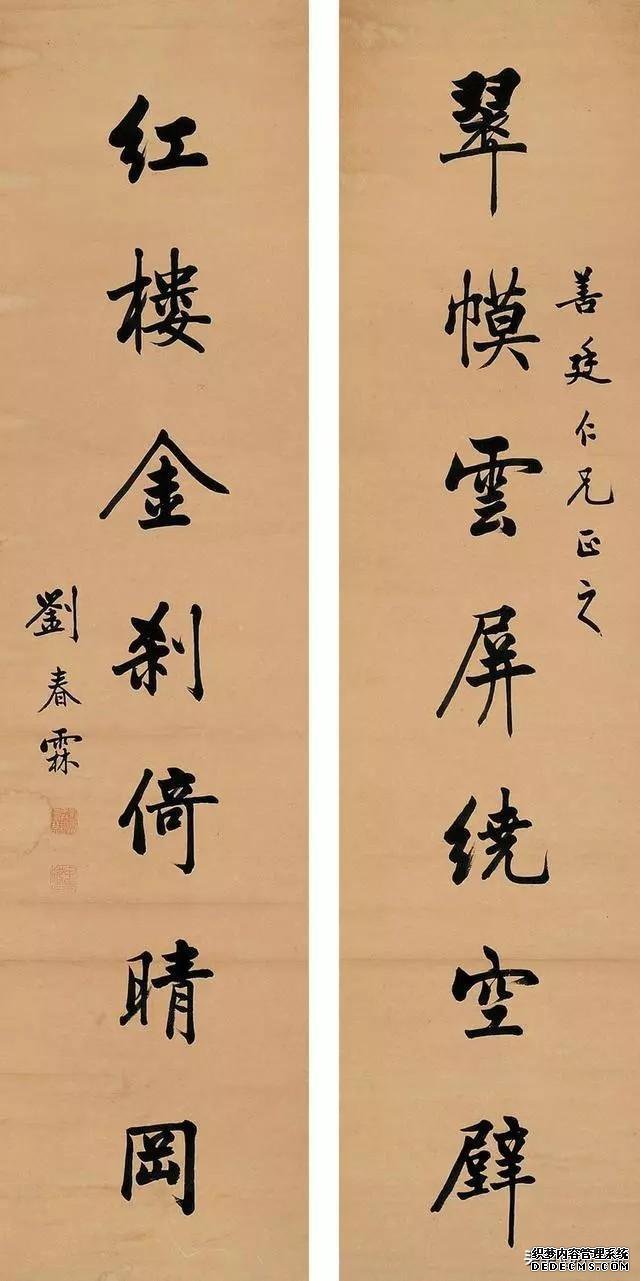 善廷仁兄正之
翠幙雲屏繞空壁
紅樓金刹倚晴岡
劉春霖
织梦内容管理系统
DEDECMS.COM